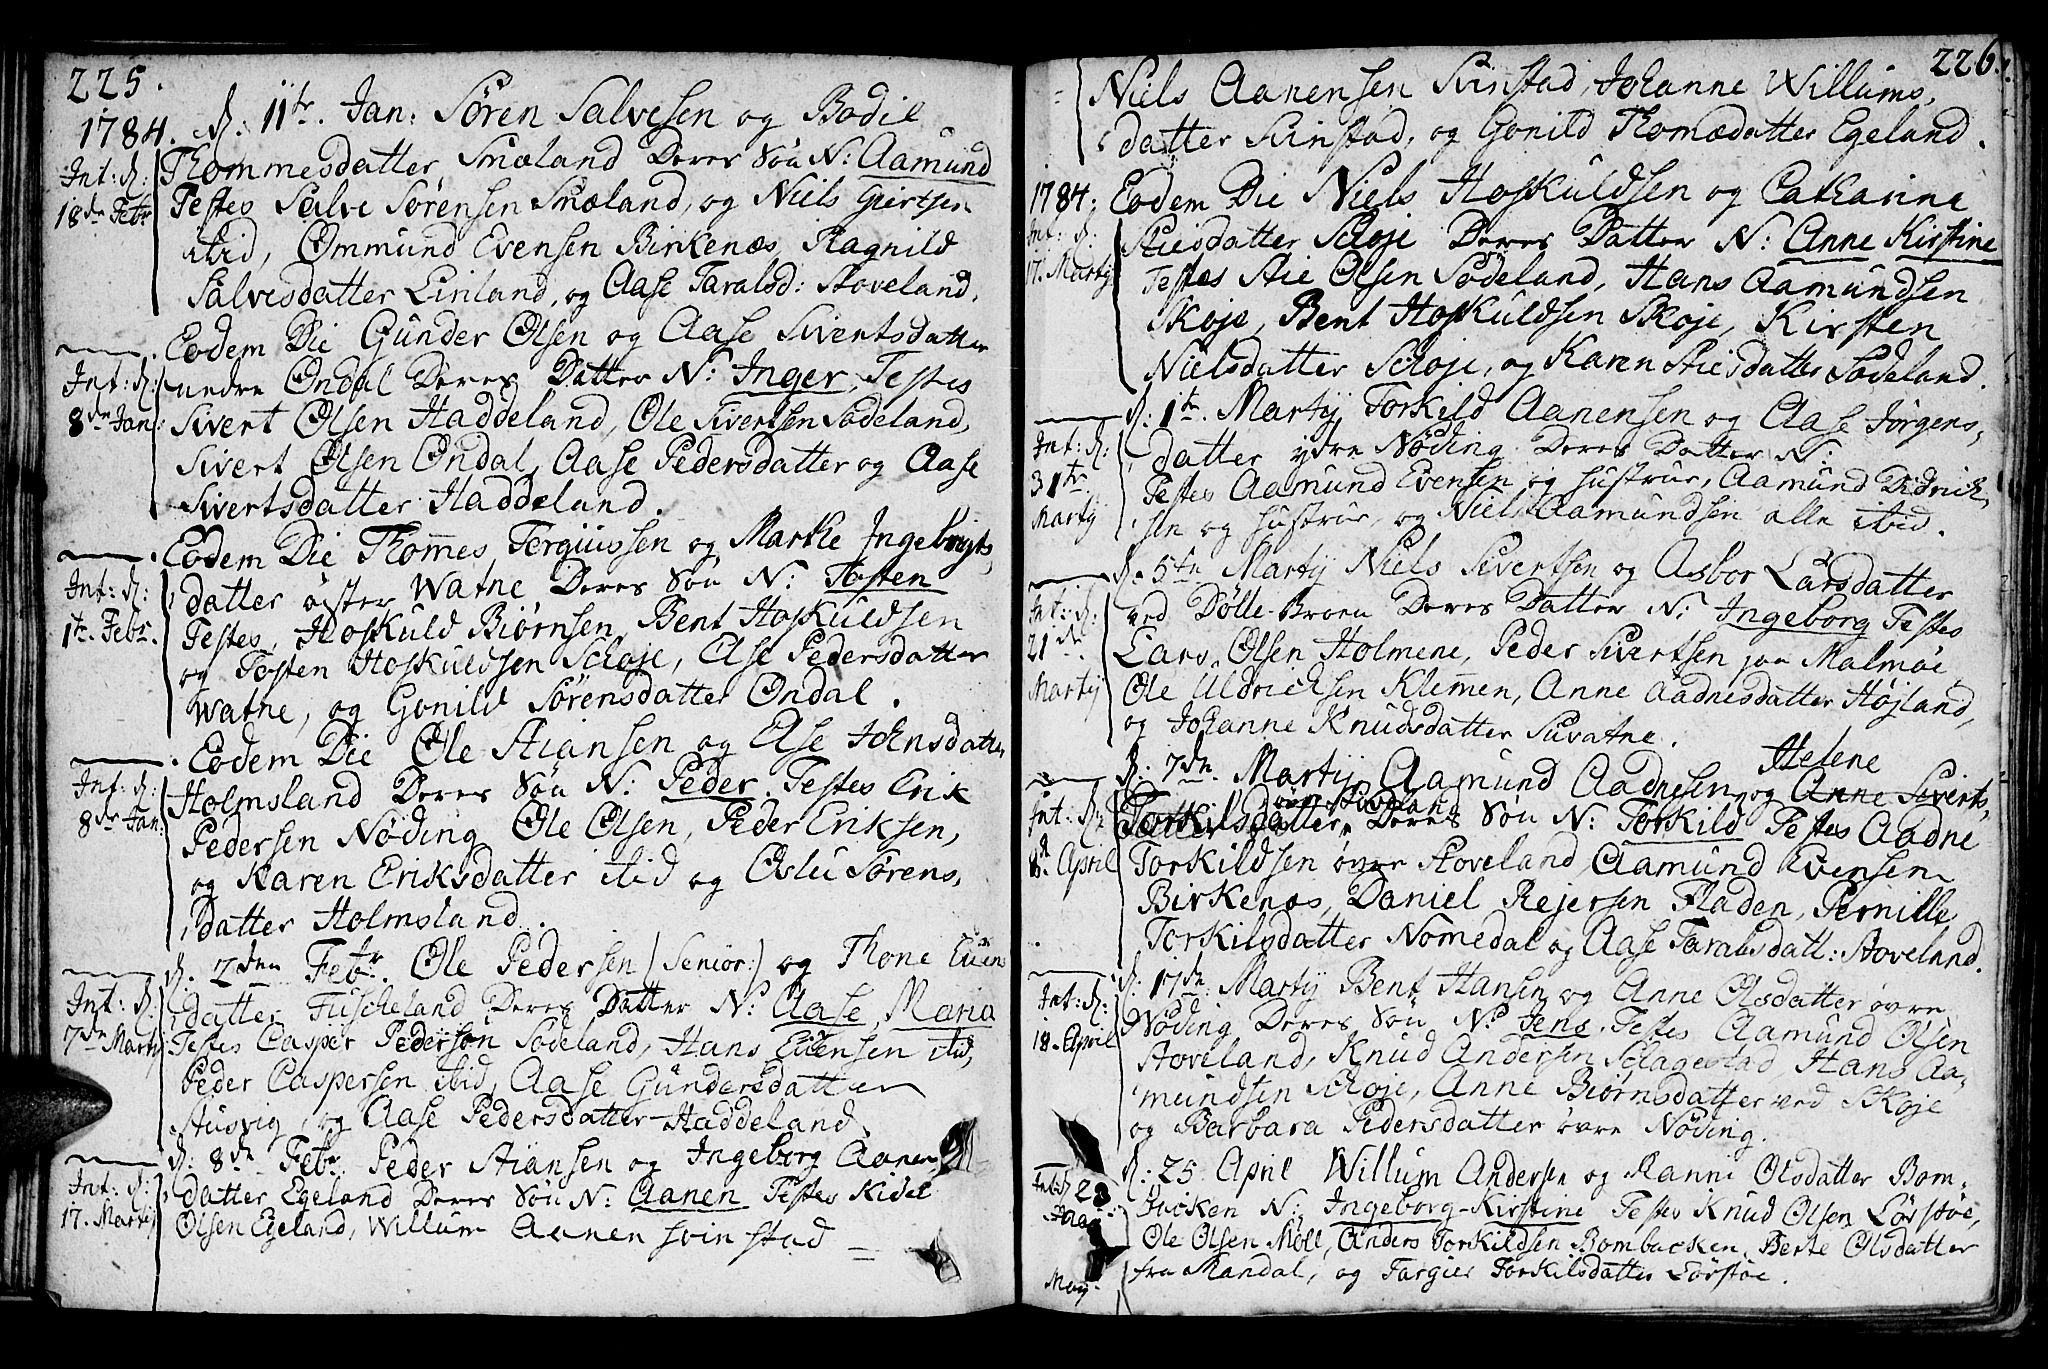 225.
1784. d. 11te. Jan: Søren Salvesen og Bodil
Int: d: 18de Febr
Thommesdatter Snæland Deres Søn N: Aamund
Testes Salve Sørensen Snæland, og Niels Giertsen
ibid, Ommund Evensen Birkenæs, Ragnild
Salvesdatter Linland, og Aase Taralsd: Stoveland.
Eodem Die Gunder Olsen og Aase Sivertsdatter
Int: d: 8de Jan:
nedre Ondal Deres Datter N: Inger, Testes
Sivert Olsen Haddeland, Ole Sivertsen Sodeland,
Sivert Olsen Ondal, Aase Pedersdatter og Aase
Sivertsdatter Haddeland.
Eodem Die Thomes Tergiussen og Marthe Ingebrigts,
Int: d: 1te. Febr.
datter øister Watne Deres Søn N: Tosten
Testes, Hoskuld Biørnsen, Bent Hoskuldsen
og Tosten Hoskuldsen Schoje, Else Pedersdatter
Watne, og Gonild Sørensdatter Ondal.
Eodem Die Ole Stiansen og Else Johnsdatter
Int: d: 8de Jan:
Holmsland Deres Søn N: Peder. Testes Erik
Pedersen Nøding Ole Olsen, Peder Eriksen,
og Karen Eriksdatter ibid og Oslu Sørens,
datter Holmsland.
d. 7den Febr. Ole Pedersen (Senior:) og Thone Euens
Int: d: 7de Martij
datter Tuscheland Deres Datter N: Aase Maria
Testes Casper Pedersen Sodeland, Hans Euensen ibid,
Peder Caspersen ibid, Aase Gundersdatter
Stusvig, og Aase Pedersdatter Haddeland.
d. 8de Febr. Peder Stiansen og Ingeborg Aanen
Int: d: 17. Martij
datter Egeland Deres Søn N: Aanen Testes Kidel
Olsen Egeland, Willum Aanen Svinstad =
226.
= Niels Aanensen Svinstad, Johanne Willums,
datter Svinstad, og Gonild Thomædatter Egeland.
1784. Eodem Die Niels Hoskuldsen og Catharine
Int: d: 17. Martij
Stiesdatter Schoje Deres Datter N: Anne Kirstine
Testes Stie Olsen Sodeland, Hans Aamundsen
Skoje, Bent Hoskuldsen Skoje, Kirsten
Nielsdatter Schoje, og Karen Stiesdatter Sodeland.
d. 1te. Martij Torkild Aanensen og Aase Jørgens,
Int: d: 31te. Martij
datter ydre Nøding Deres Datter N:
Testes Aamund Evensen og hustrue, Aamund Didrich,
sen og hustrue, og Niels Aamundsen alle ibid.
d. 5te Martij Niels Sivertsen og Asbor Larsdatter
Int: d: 21de Martij
ved Dölle-Broen Deres Datter N: Ingeborg Testes
Lars Olsen Holmene, Peder Sivertsen paa Malmøe,
Ole Uldricksen Klemen, Anne Aadnesdatter Højland,
og Johanne Knudsdatter Suvatne.
d. 7de. Martij Aamund Aadnesen og Anne Siverts, Helene
Int: d. April
Torkilsdatter øvre Stoveland Deres Søn N: Torkild Testes Aadne
Torkildsen øvre Stoveland Aamund Evensen
Birkenæs, Daniel Rejersen Fladen, Pernille
Torkilsdatter Nomedal og Aase Taralsdatt: Stoveland.
d. 17de. Martij Bent Hansen og Anne Olsdatter øvre
Int: d: 18. April
Nøding Deres Søn N: Jens. Testes Aamund Olsen
Stoveland, Knud Andersen Schagestad, Hans Aa-
mundsen Schoje, Anne Biørnsdatter ved Skoje
og Barbara Pedersdatter øvre Nøding.
d. 25 April Willum Andersen og Ranni Olsdatter Bom,
Int: d 23 May.
bucken N: Ingeborg-Kirstine Testes Knud Olsen Lørstøe,
Ole Olsen Möll, Anders Torkildsen Bombucken, Berte Olsdatter
fra Mandal, og Targier Torkilsdatter Lørstøe.